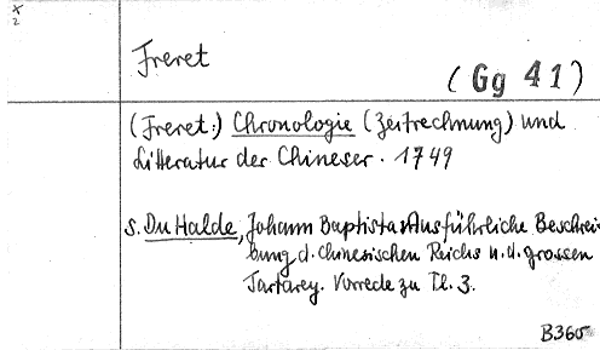 x
2
Freret
(Gg 41)
(Freret:) Chronologie (Zeitrechnung) und
Litteratur der Chineser. 1749
s. Du Halde, Johann Baptista: Ausführliche Beschrei-
bung d. Chinesischen Reichs u. d. grossen
Tartarey. Vorrede zu Tl. 3.
B360